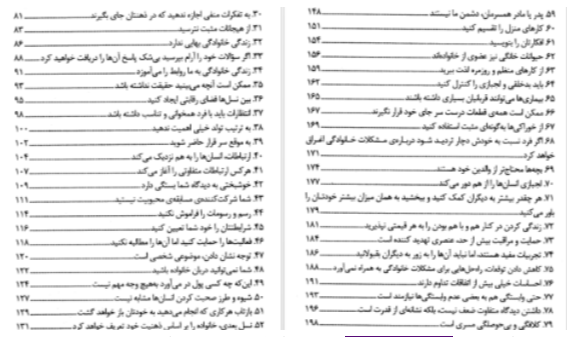 ۳۰. به تفکرات منفی اجازه ندهید که در ذهنتان جای بگیرند ۸۱
۳۱. از هیجانات مثبت نترسید ۸۳
۳۲. زندگی خانوادگی بهایی ندارد ۸۶
۳۳. اگر سؤالات خود را آرام بپرسید بی‌شک پاسخ آن‌ها را دریافت خواهید کرد ۸۸
۳۴. زندگی خانوادگی به ما روابط را می‌آموزد ۹۱
۳۵. ممکن است آنچه می‌بینید حقیقت نداشته باشد ۹۳
۳۶. بین نسل‌ها فضای رقابتی ایجاد کنید ۹۵
۳۷. انتظارات باید با فرد همخوانی و تناسب داشته باشد ۹۸
۳۸. به ترتیب تولد خیلی اهمیت ندهید ۱۰۰
۳۹. به موقع سر قرار حاضر شوید ۱۰۲
۴۰. ارتباطات، انسان‌ها را به هم نزدیک می‌کند ۱۰۴
۴۱. هر کس ارتباطات متفاوتی را آغاز می‌کند ۱۰۷
۴۲. خوشبختی به دیدگاه شما بستگی دارد ۱۰۹
۴۳. شما شرکت‌کننده‌ی مسابقه‌ی محبوبیت نیستید ۱۱۱
۴۴. رسم و رسومات را فراموش نکنید ۱۱۴
۴۵. شرایطتان را خود شما تعیین کنید ۱۱۶
۴۶. فعالیت‌ها را حمایت کنید اما آن‌ها را مطالبه نکنید ۱۱۸
۴۷. توجه نشان دادن، موضوعی شخصی است ۱۲۰
۴۸. شما نمی‌توانید دربان خانواده باشید ۱۲۲
۴۹. این‌که چه کسی پول در می‌آورد به‌هیچ وجه مهم نیست ۱۲۴
۵۰. شیوه و طرز صحبت کردن انسان‌ها مشابه نیست ۱۲۷
۵۱. بازتاب هر کاری که انجام می‌دهید به خودتان باز خواهد گشت ۱۲۹
۵۲. نسل بعدی، خانواده را بر اساس ذهنیت خود تعریف خواهد کرد ۱۳۱
۵۹. پدر یا مادر همسرمان، دشمن ما نیستند ۱۴۸
۶۰. کارهای منزل را تقسیم کنید ۱۵۱
۶۱. افکارتان را بنویسید ۱۵۴
۶۲. حیوانات خانگی نیز عضوی از خانواده‌اند ۱۵۶
۶۳. از کارهای منظم و روزمره لذت ببرید ۱۵۹
۶۴. باید بدخلقی و لجبازی را کنترل کنید ۱۶۲
۶۵. بیماری‌ها می‌توانند قربانیان بسیاری داشته باشند ۱۶۵
۶۶. ممکن است همه‌ی قطعات درست سر جای خود قرار نگیرند ۱۶۷
۶۷. از خوراکی‌ها به‌گونه‌ای مثبت استفاده کنید ۱۶۹
۶۸. اگر فرد نسبت به خودش دچار تردید شود درباره‌ی مشکلات خانوادگی اغراق
خواهد کرد ۱۷۱
۶۹. بچه‌ها محتاج‌تر از والدین خود هستند ۱۷۴
۷۰. لجبازی انسان‌ها را از هم دور می‌کند ۱۷۷
۷۱. هر چقدر بیشتر به دیگران کمک کنید و ببخشید به همان میزان بیشتر خودتان را
باور می‌کنید ۱۷۹
۷۲. زندگی کردن در کنار هم و با هم بودن را به هر قیمتی نپذیرید ۱۸۱
۷۳. حمایت و مراقبت بیش از حد، عنصری تهدید کننده است ۱۸۴
۷۴. تجربیات مفید هستند، اما نباید آن‌ها را به زور به دیگران بقبولانید ۱۸۶
۷۵. کاهش دادن توقعات، راه‌حل‌هایی برای مشکلات خانوادگی به همراه نمی‌آورد ۱۸۸
۷۶. احساسات خیلی بیش از اتفاقات تداوم دارند ۱۹۱
۷۷. حتی وابستگی هم به بعضی عدم وابستگی‌ها نیازمند است ۱۹۳
۷۸. داشتن دیدگاه متفاوت ضعف نیست، بلکه نشانه‌ای از قدرت است ۱۹۶
۷۹. کلافگی و بی‌حوصلگی مسری است ۱۹۸